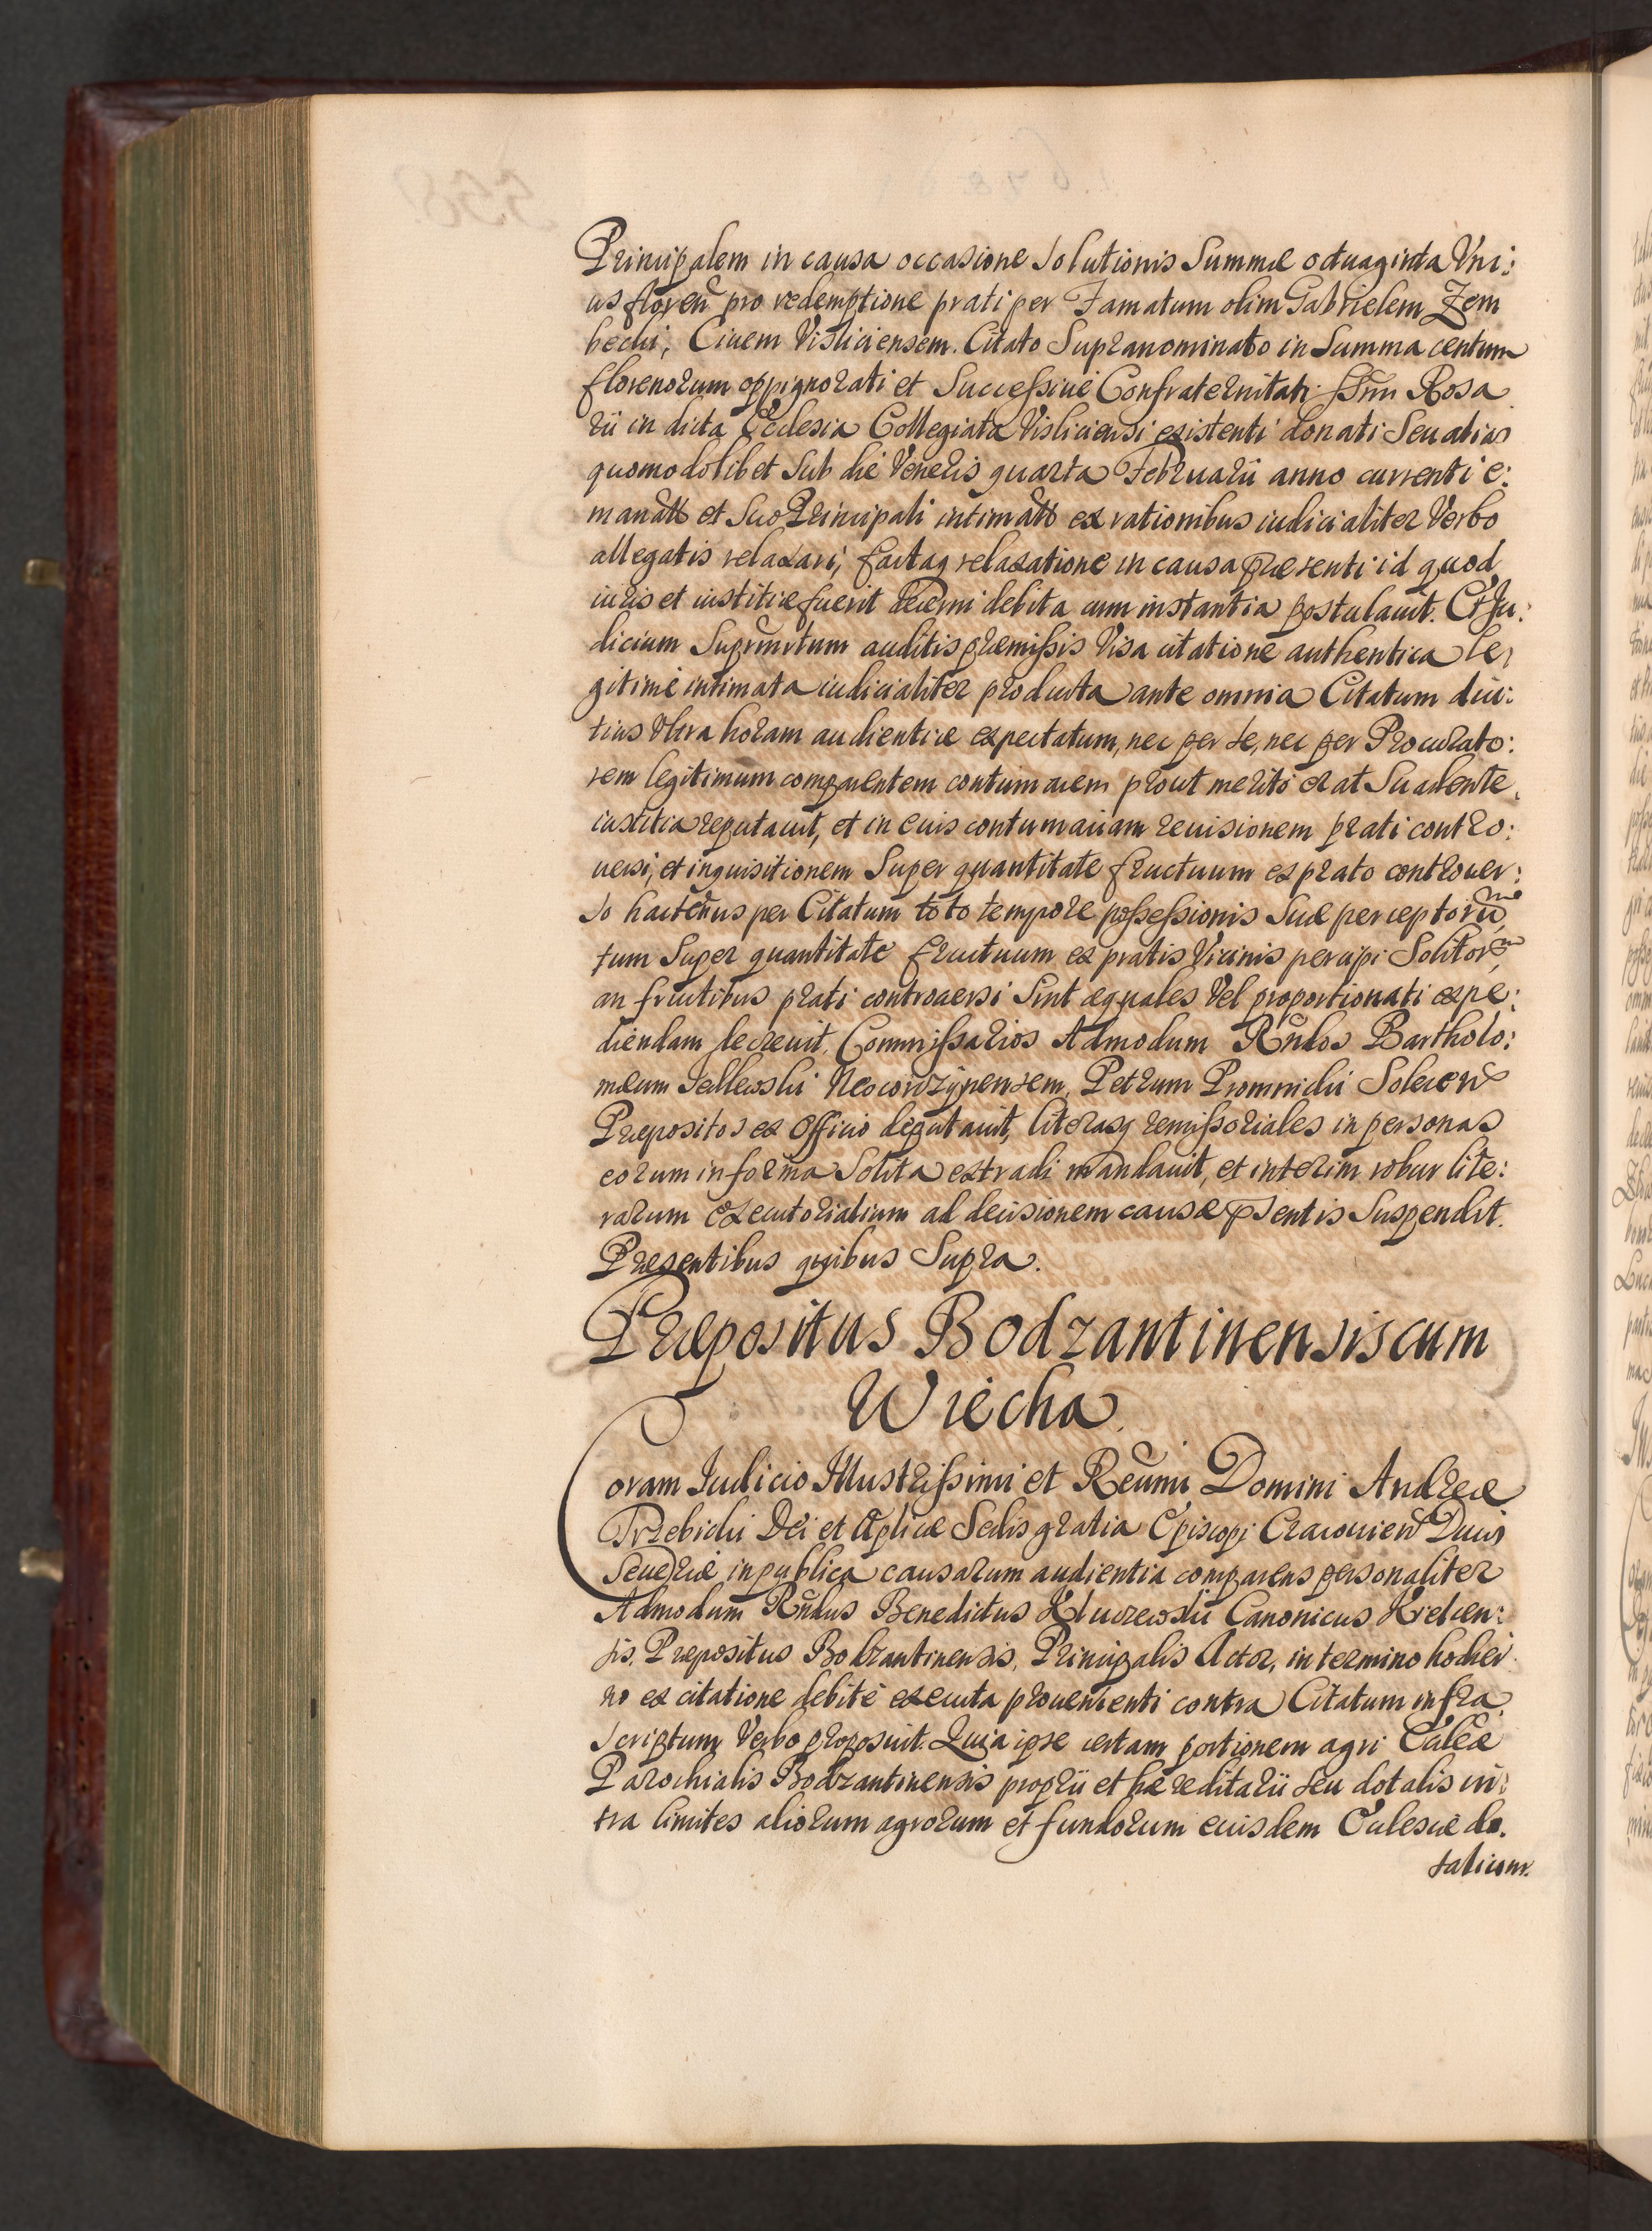 Principalem in causa occasione Solutionis Summæ octuaginta Vni:
us floreñ pro redemptione prati per Famatum olim Gabrielem Zem
becki, Ciuem Visliciensem. Citato Supranominato in Summa centum
florenorum oppignorati et Successiué Confraternitati SSmi Rosa
rii in dicta Ecclesia Collegiata Visliciensi existenti donati Seu alias
quomodolibet Sub die Veneris quarta Februarii anno currenti e:
manatt et Suo Principali intimatt ex rationibus iudicialiter Verbo
allegatis relaxari, factaq relaxatione in causa præsenti id quod
iuris et iustitiæ fuerit decerni debita cum instantia postulauit. Et Ju:
dicium Suprnrtum auditis præmissis Visa citatione authentica le,
gitimé intimata iudicialiter producta ante omnia Citatum diu:
tius Vltra horam audientiæ expectatum, nec per se, nec per Procurato:
rem legitimum comparentem contumacem prout meritó erat Suadente
iustitia reputauit, et in euis contumaciam reuisionem prati contro:
uersi, et inquisitionem Super quantitate fructuum ex prato controuer:
so hactenus per Citatum toto tempore possessionis Suæ perceptorũ
tum Super quantitate fructuum ex pratis Vicinis percipi Solitorũ
an fructibus prati controuersi Sint æquales Vel proportionati expe:
diendam decreuit, Commissarios Admodum Rñdos Bartholo:
mæum Jedlewski Neocorczynensem, Petrum Promnicki Solecen
Præpositos ex Officio deputauit, literasq remissoriales in personas
eorum in forma Solita extradi mandauit, et interim robur lite:
rarum executorialium ad decisionem causæ psentis Suspendit.
Præsentibus quibus Supra.
Præpositus Bodzantinensis cum
Wiecha
Coram Iudicio Illustrissimi et Reũmi Domini Andreæ
Trzebicki Dei et Aplicæ Sedis gratia Episcopi Cracouien Ducis
Seueriæ in publica causarum audientia comparens personaliter
Admodum Rñdus Benedictus Kluczewski Canonicus Kielcen:
sis, Præpositus Bodzantinensis, Principalis Actor, in termino hodier
no ex citatione debité executa proueniënti contra Citatum infra
Scriptum Verbo proposuit. Quia ipse certam portionem agri Ecclæ
Parochialis Bodzantinensis proprii et hæreditarii seu dotalis in:
tra limites aliorum agrorum et fundorum euisdem Ecclesiæ do.
talium.